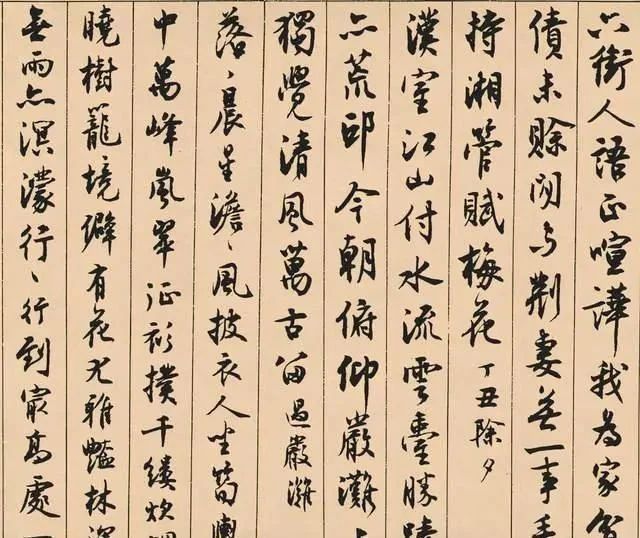 六街人語正喧譁我為家
債未賒閒与荆妻無一事手
持湘管賦梅花丁丑除夕
漢室江山付水流雲臺勝蹟
亦荒邱今朝俯仰嚴灘上
獨覺清風萬古留過嚴灘
落、晨星澹、風披衣人坐筍輿
中萬峰嵐翠征衫撲千縷炊煙
曉樹籠境僻有花尤雅豔林深
無雨亦溟濛行、行到最高處